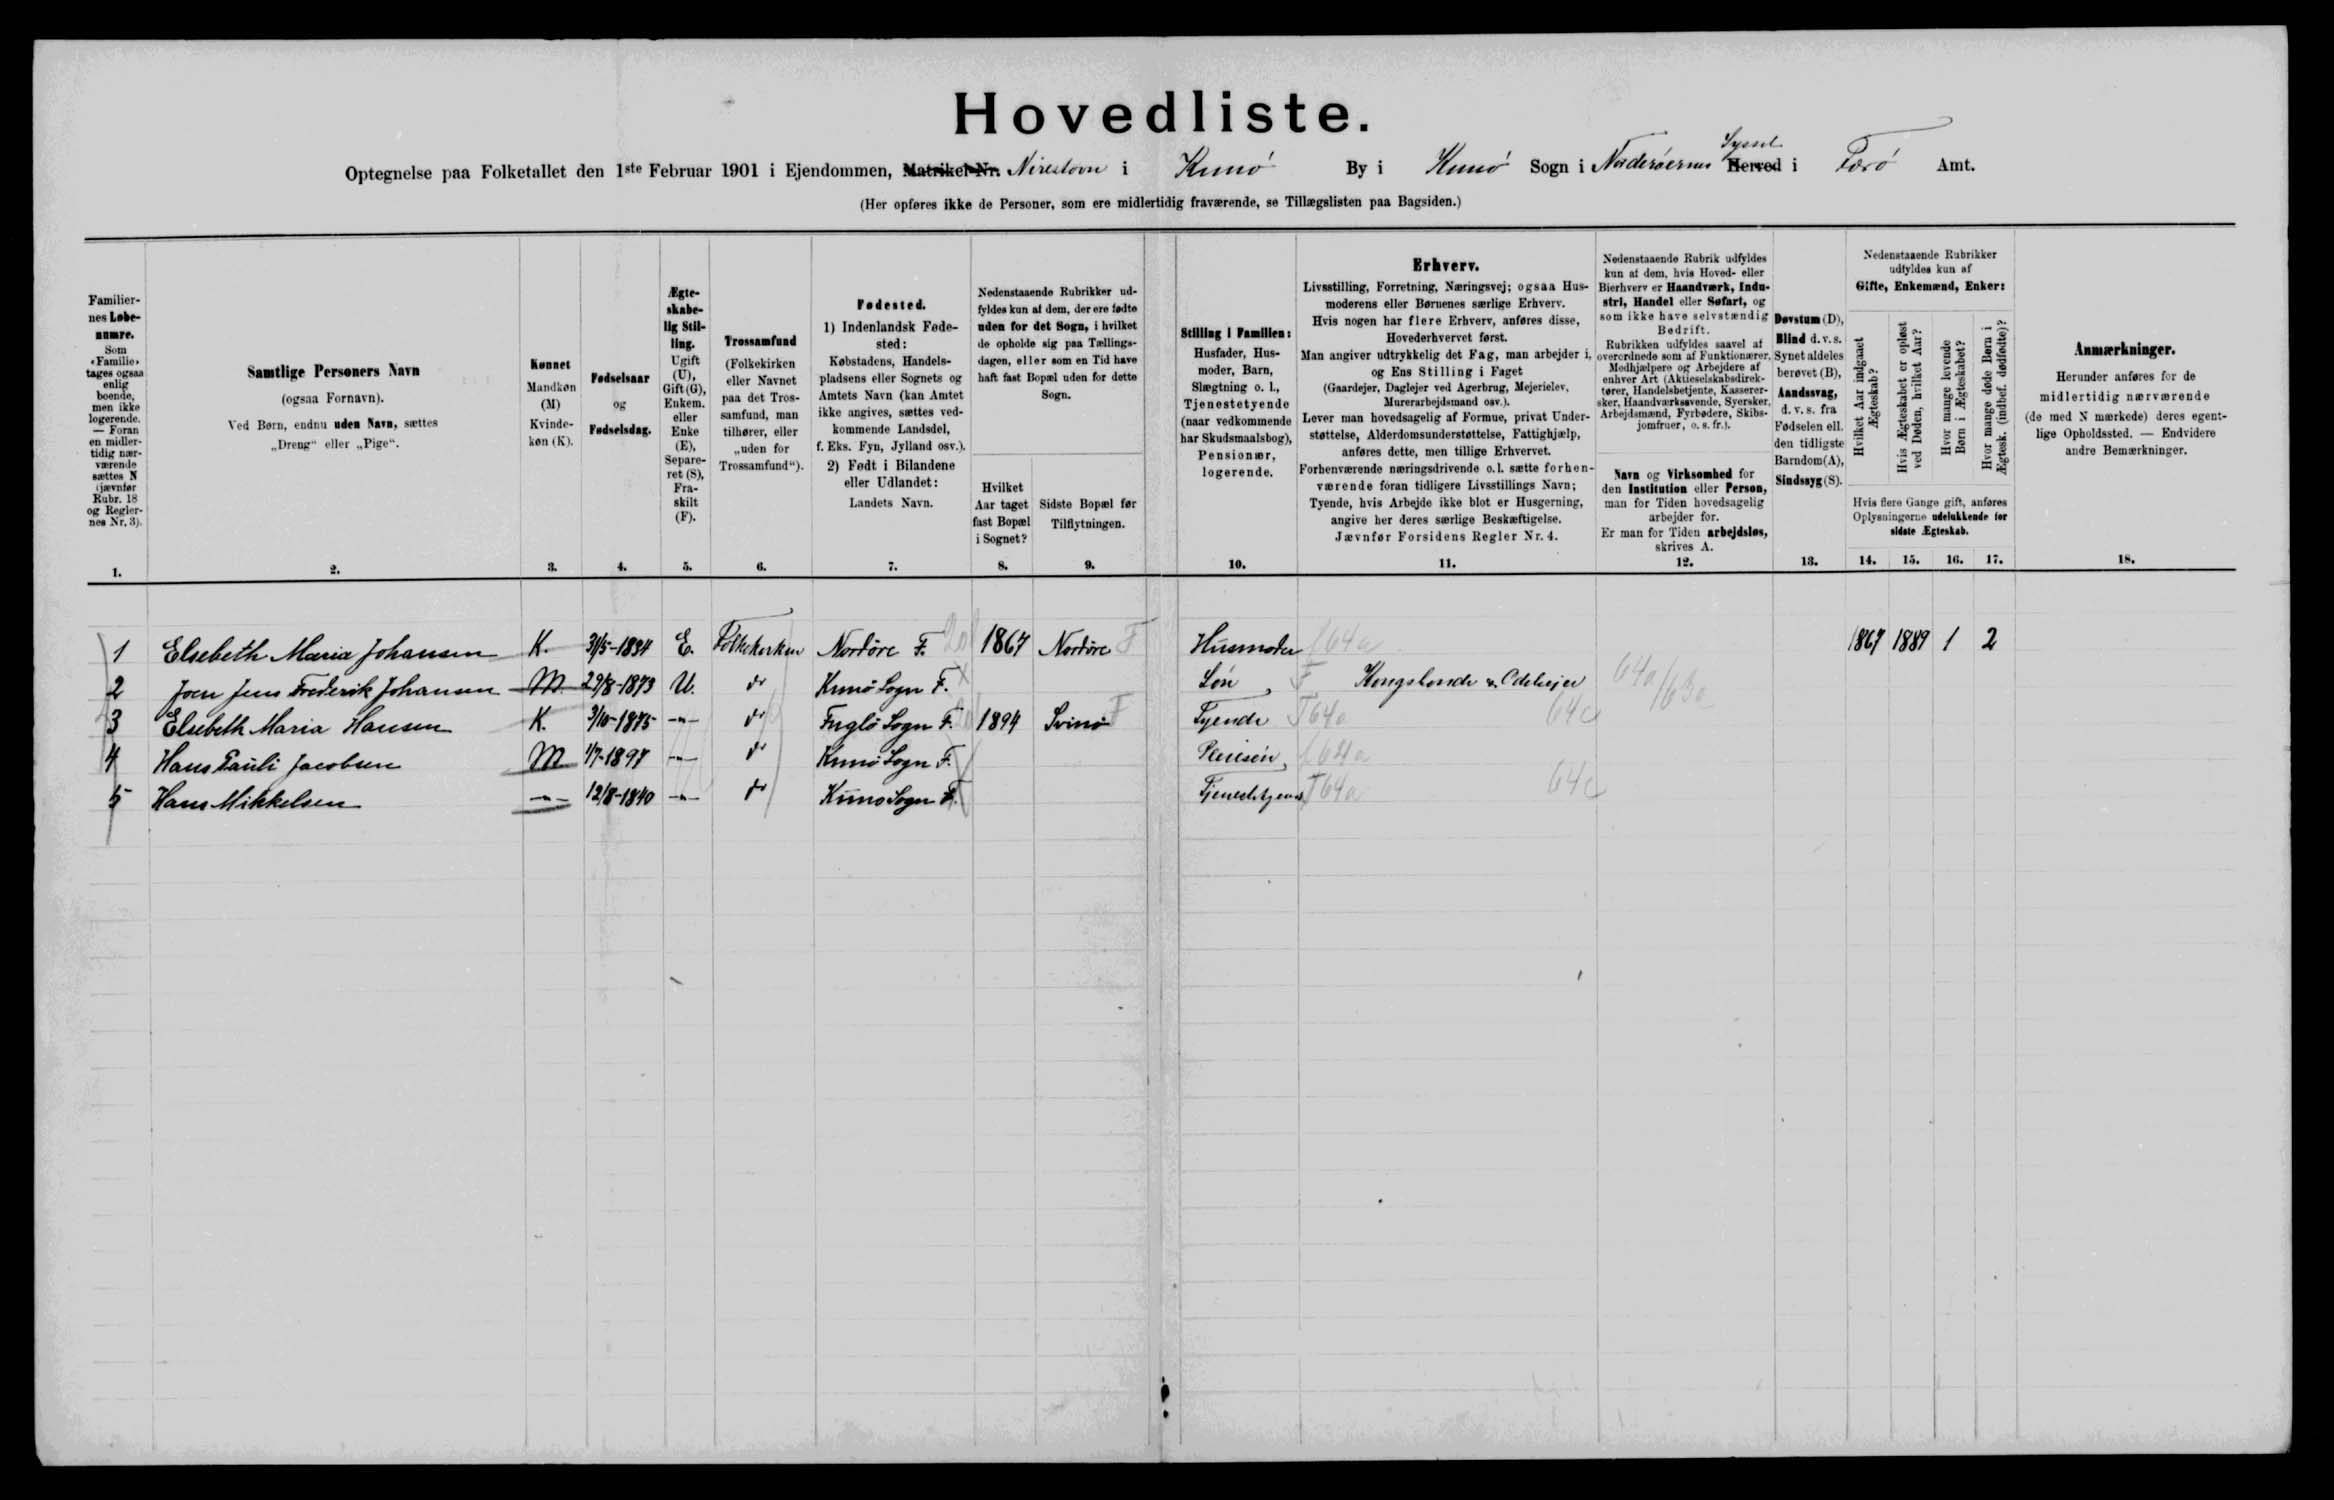 Hovedliste.
Optegnelse paa Folketallet den 1ste Februar 1901 i Ejendommen, Matrikel-Nr. Nirestovu i Kunö By i Kunö Sogn i Norderöernes Herred Syssel i Færö Amt.
(Her opføres ikke de Personer, som ere midlertidig fraværende, se Tillægslisten paa Bagsiden.)
Familiernes Løbenumre.
Som «Familie» tages ogsaa enlig boende, men ikke logerende. — Foran en midlertidig nærværende sættes N (jævnfør Rubr. 18 og Reglernes Nr. 3).
1.
Samtlige Personers Navn
(ogsaa Fornavn).
Ved Børn, endnu uden Navn, sættes
„Dreng“ eller „Pige“.
2.
Kønnet
Mandkøn (M)
Kvindekøn (K).
3.
Fødselsaar
og
Fødselsdag.
4.
Ægteskabelig Stilling.
Ugift (U), Gift (G), Enkem. eller Enke (E), Separeret (S), Fraskilt (F).
5.
Trossamfund
(Folkekirken eller Navnet paa det Trossamfund, man tilhører, eller „uden for Trossamfund“).
6.
Fødested.
1) Indenlandsk Fødested:
Købstadens, Handelspladsens eller Sognets og Amtets Navn (kan Amtet ikke angives, sættes vedkommende Landsdel, f. Eks. Fyn, Jylland osv.).
2) Født i Bilandene eller Udlandet:
Landets Navn.
7.
Nedenstaaende Rubrikker udfyldes kun af dem, der ere fødte uden for det Sogn, i hvilket de opholde sig paa Tællingsdagen, eller som en Tid have haft fast Bopæl uden for dette Sogn.
Hvilket Aar taget fast Bopæl i Sognet?
8.
Sidste Bopæl før Tilflytningen.
9.
Stilling i Familien:
Husfader, Husmoder, Barn, Slægtning o. l., Tjenestetyende (naar vedkommende har Skudsmaalsbog), Pensionær, logerende.
10.
Erhverv.
Livsstilling, Forretning, Næringsvej; ogsaa Husmoderens eller Børnenes særlige Erhverv.
Hvis nogen har flere Erhverv, anføres disse, Hovederhvervet først.
Man angiver udtrykkelig det Fag, man arbejder i, og Ens Stilling i Faget
(Gaardejer, Daglejer ved Agerbrug, Mejerielev, Murerarbejdsmand osv.).
Lever man hovedsagelig af Formue, privat Understøttelse, Alderdomsunderstøttelse, Fattighjælp, anføres dette, men tillige Erhvervet.
Forhenværende næringsdrivende o.l. sætte forhenværende foran tidligere Livsstillings Navn;
Tyende, hvis Arbejde ikke blot er Husgerning, angive her deres særlige Beskæftigelse.
Jævnfør Forsidens Regler Nr. 4.
11.
Nedenstaaende Rubrik udfyldes kun af dem, hvis Hoved- eller Bierhverv er Haandværk, Industri, Handel eller Søfart, og som ikke have selvstændig Bedrift.
Rubrikken udfyldes saavel af overordnede som af Funktionærer, Medhjælpere og Arbejdere af enhver Art (Aktieselskabsdirektører, Handelsbetjente, Kasserersker, Haandværkssvende, Syersker, Arbejdsmænd, Fyrbødere, Skibsjomfruer, o. s. fr.).
Navn og Virksomhed for den Institution eller Person, man for Tiden hovedsagelig arbejder for.
Er man for Tiden arbejdsløs, skrives A.
12.
Døvstum (D), Blind d. v. s. Synet aldeles berøvet (B), Aandssvag, d. v. s. fra Fødselen ell. den tidligste Barndom (A), Sindssyg (S).
13.
Nedenstaaende Rubrikker udfyldes kun af
Gifte, Enkemænd, Enker:
Hvilket Aar indgaaet Ægteskab?
Hvis Ægteskabet er opløst ved Døden, hvilket Aar?
Hvor mange levende Børn i Ægteskabet?
Hvor mange døde Børn i Ægtesk. (indbef. dødfødte)?
Hvis flere Gange gift, anføres Oplysningerne udelukkende for sidste Ægteskab.
14. 15. 16. 17.
Anmærkninger.
Herunder anføres for de midlertidig nærværende (de med N mærkede) deres egentlige Opholdssted. — Endvidere andre Bemærkninger.
18.
1 Elsebeth Maria Johansen K. 31/5-1834 E. Folkekirken Nordöre F. 1867 Nordöre F Husmoder 64a 1867 1889 1 2
2 Joen Jens Frederik Johansen M. 29/8-1873 U. do Kunö Sogn F. Sön F Kongsbonde o. Odelsejer 64a/63a
3 Elsebeth Maria Hansen K. 3/10-1875 -"- do Fuglö Sogn F. 1894 Svinö F Tyende T 64a 64c
4 Hans Pauli Jacobsen M 1/7-1897 -"- do Kunö Sogn F. Pleiesön, 64a
5 Hans Mikkelsen -"- 12/8-1840 -"- do Kunö Sogn F. T 64a 64c